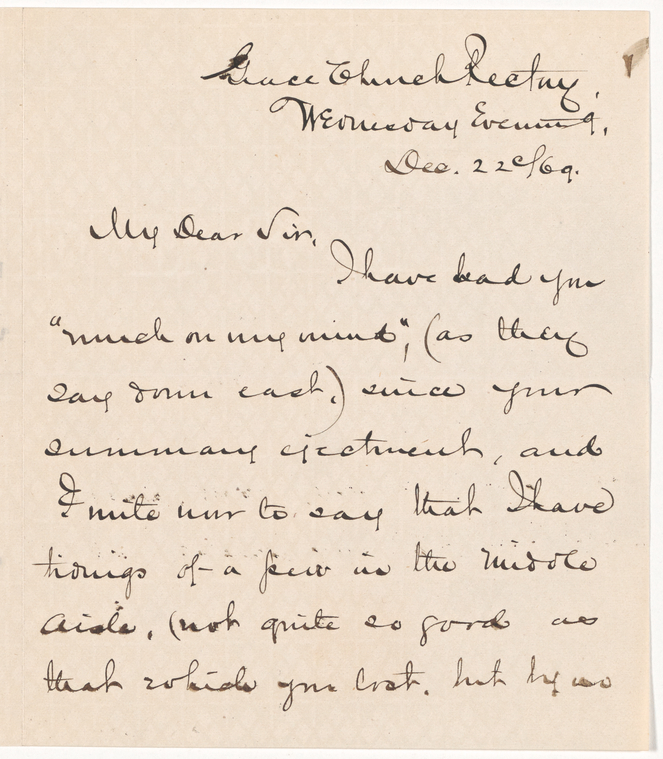 Grace Church Rectory,
Wednesday Evening,
Dec. 22d/69.
My Dear Sir,
I have had you
"much on my mind", (as they
say down east,) since your
summary ejectment, and
I write now to say that I have
tidings of a pew in the middle
aisle, (not quite so good as
that which you lost, but by no